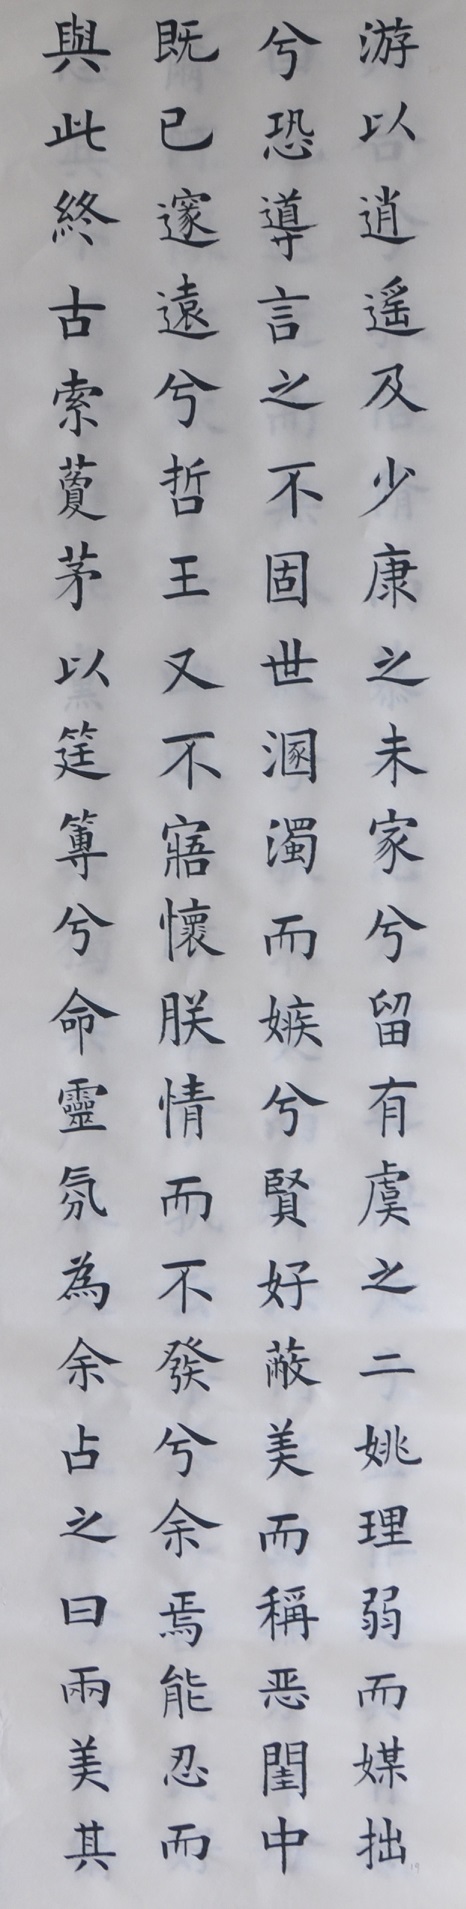 游以逍遥及少康之未家兮留有虞之二姚理弱而媒拙
兮恐導言之不固世溷濁而嫉兮賢好蔽美而稱恶閨中
既已邃遠兮哲王又不寤懷朕情而不發兮余焉能忍而
與此終古索藑茅以筳篿兮命靈氛為余占之曰兩美其